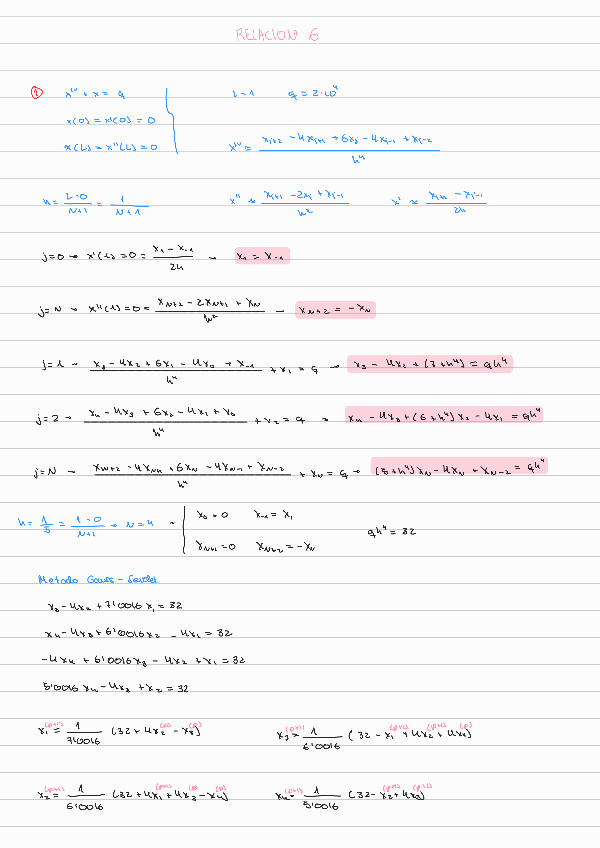 RELACION 6
① x^IV + x = q    L=1    q = 2·10^4
x(0) = x'(0) = 0
x(L) = x''(L) = 0    x^IV = (x_{j+2} - 4x_{j+1} + 6x_j - 4x_{j-1} + x_{j-2}) / h^4
h = (L-0)/(N+1) = 1/(N+1)    x'' ≈ (x_{j+1} - 2x_j + x_{j-1}) / h^2    x' ≈ (x_{j+1} - x_{j-1}) / 2h
j=0 → x'(L) = 0 = (x_1 - x_{-1}) / 2h → x_1 = x_{-1}
j=N → x''(L) = 0 = (x_{N+2} - 2x_{N+1} + x_N) / h^2 → x_{N+2} = -x_N
j=1 → (x_3 - 4x_2 + 6x_1 - 4x_0 + x_{-1}) / h^4 + x_1 = q → x_3 - 4x_2 + (7+h^4) = qh^4
j=2 → (x_4 - 4x_3 + 6x_2 - 4x_1 + x_0) / h^4 + x_2 = q → x_4 - 4x_3 + (6+h^4) x_2 - 4x_1 = qh^4
j=N → (x_{N+2} - 4x_{N+1} + 6x_N - 4x_{N-1} + x_{N-2}) / h^4 + x_N = q → (5+h^4) x_N - 4x_N + x_{N-2} = qh^4
h = 1/5 = (1-0)/(N+1) → N=4 → x_0 = 0    x_{-1} = x_1
x_{N+1} = 0    x_{N+2} = -x_N    qh^4 = 32
Metodo Gauss-Seidel
x_3 - 4x_2 + 7'0016 x_1 = 32
x_4 - 4x_3 + 6'0016 x_2 - 4x_1 = 32
-4x_4 + 6'0016 x_3 - 4x_2 + x_1 = 32
5'0016 x_4 - 4x_3 + x_2 = 32
x_1^(p+1) = 1/7'0016 (32 + 4x_2^(p) - x_3^(p))    x_3^(p+1) = 1/6'0016 (32 - x_1^(p+1) + 4x_2^(p+1) + 4x_4^(p))
x_2^(p+1) = 1/6'0016 (32 + 4x_1^(p+1) + 4x_3^(p) - x_4^(p))    x_4^(p+1) = 1/5'0016 (32 - x_2^(p+1) + 4x_3^(p+1))